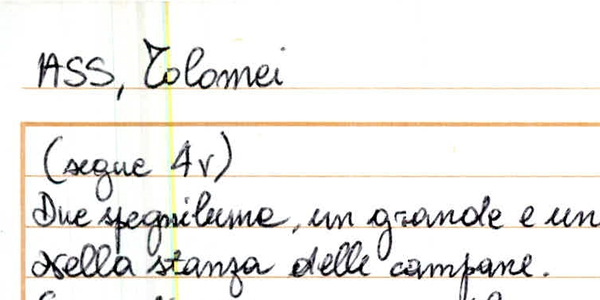 ASS, Tolomei
(segue 4v)
Due spegnilume, un grande e un
Nella stanza delle campane.